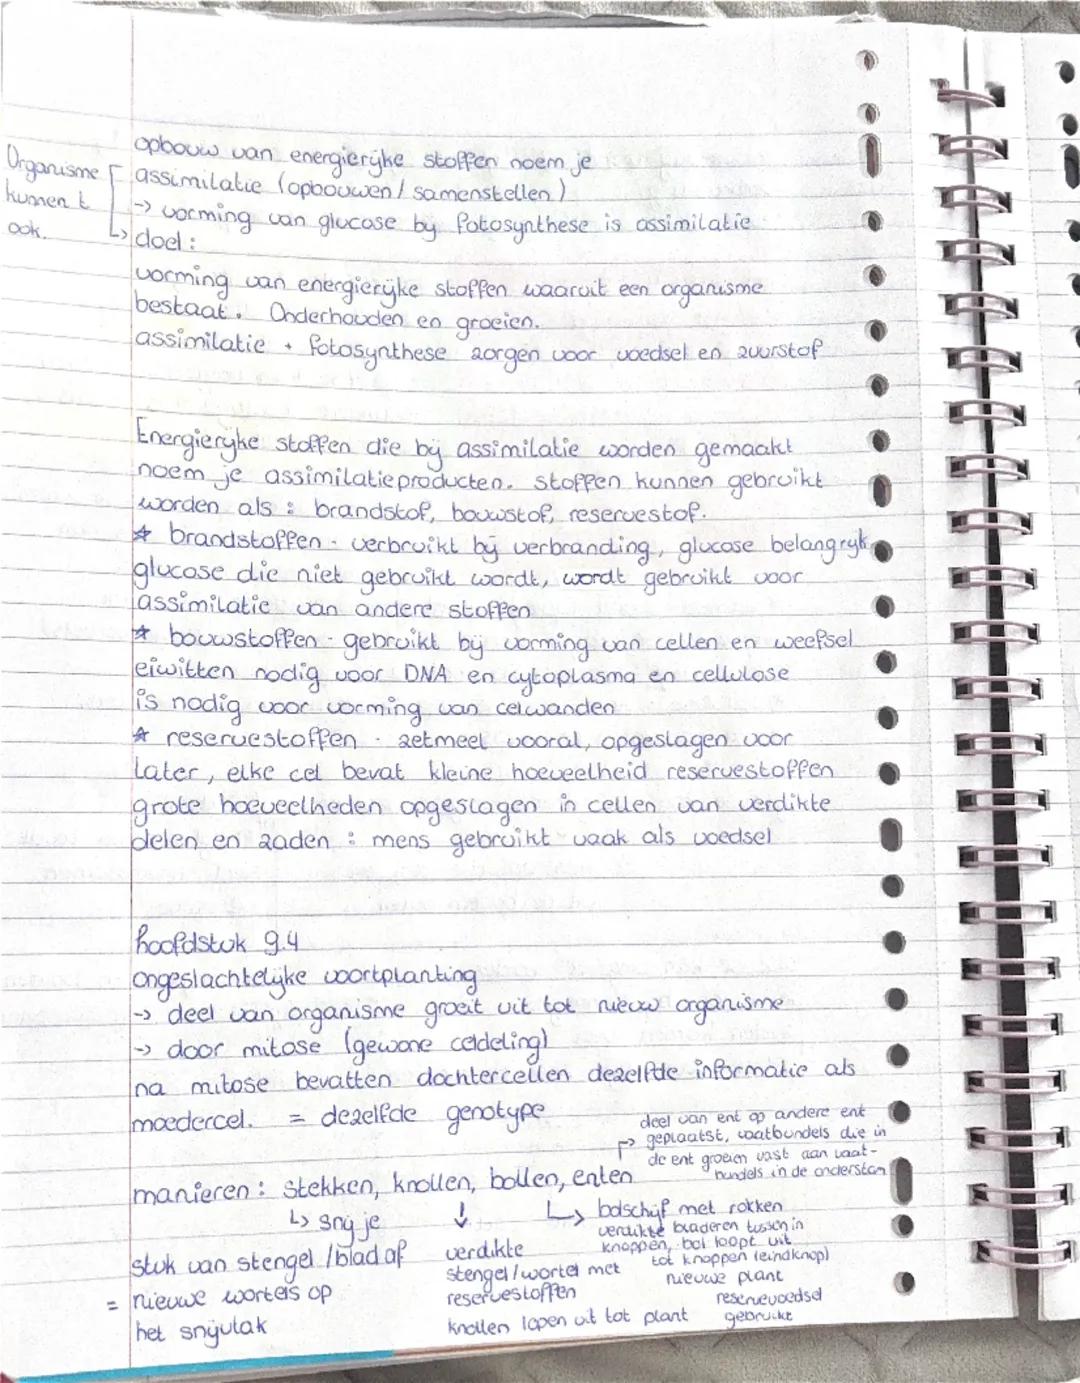 Organisme
kunnen t
ook.
opbouw van energierijke stoffen noem je
assimilatie (opbouwen / samenstellen)
→ vorming van glucose bij fotosynthese is assimilatie
↳ doel :
vorming van energierijke stoffen waaruit een organisme
bestaat. Onderhouden en groeien.
assimilatie + fotosynthese zorgen voor voedsel en zuurstof
Energierijke stoffen die bij assimilatie worden gemaakt
noem je assimilatieproducten. stoffen kunnen gebruikt
worden als : brandstof, bouwstof, reservestof.
* brandstoffen - verbruikt bij verbranding, glucose belangrijk
glucose die niet gebruikt wordt, wordt gebruikt voor
assimilatie van andere stoffen
* bouwstoffen - gebruikt bij vorming van cellen en weefsel
eiwitten nodig voor DNA en cytoplasma en cellulose
is nodig voor vorming van celwanden
* reservestoffen - zetmeel vooral, opgeslagen voor
later, elke cel bevat kleine hoeveelheid reservestoffen
grote hoeveelheden opgeslagen in cellen van verdikte
delen en zaden : mens gebruikt vaak als voedsel
hoofdstuk 9.4
ongeslachtelijke voortplanting
→ deel van organisme groeit uit tot nieuw organisme
→ door mitose (gewone celdeling)
na mitose bevatten dochtercellen dezelfde informatie als
moedercel. = dezelfde genotype
deel van ent op andere ent
→ geplaatst, vaatbundels die in
de ent groeien vast aan vaat-
bundels in de onderstam
manieren : stekken, knollen, bollen, enten
↳ snij je
stuk van stengel / blad af
= nieuwe wortels op
het snijvlak
↓
verdikte
stengel / wortel met
reservestoffen
knollen lopen uit tot plant
↳ bolschijf met rokken
verdikte bladeren tussen in
knoppen, bol loopt uit
tot knoppen (eindknop)
nieuwe plant
reservevoedsel
gebruikt